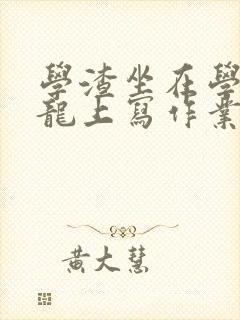 學渣坐在學
龍上寫作業
黃大慧